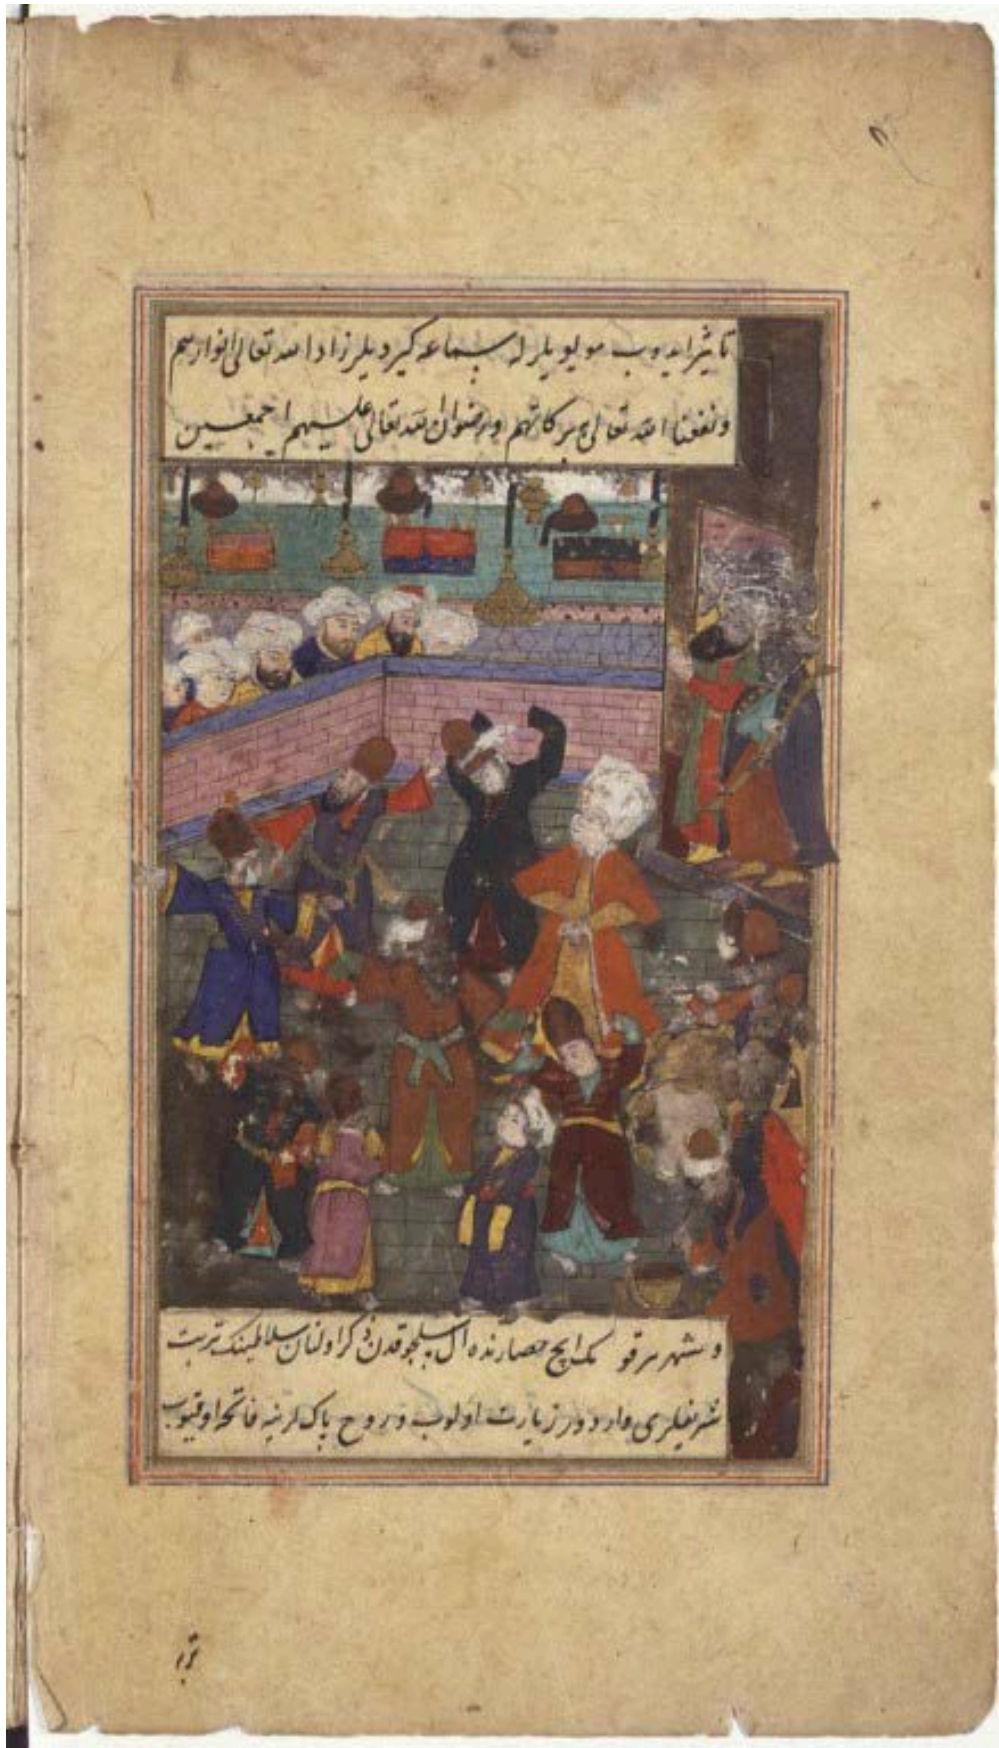 تاثیر ایدوب مولویلر له سماعه کیردیلر زاد الله تعالی انوارهم
ونفعنا الله تعالی ببرکاتهم ورضوان الله تعالی علیهم اجمعین
وشهر مرقومک ایچ حصارنده آل سلجوقدن ذکر اولنان سلاطینک تربت
شریفلری وارددر زیارت اولوب وروح پاکلرینه فاتحه اوقیوب